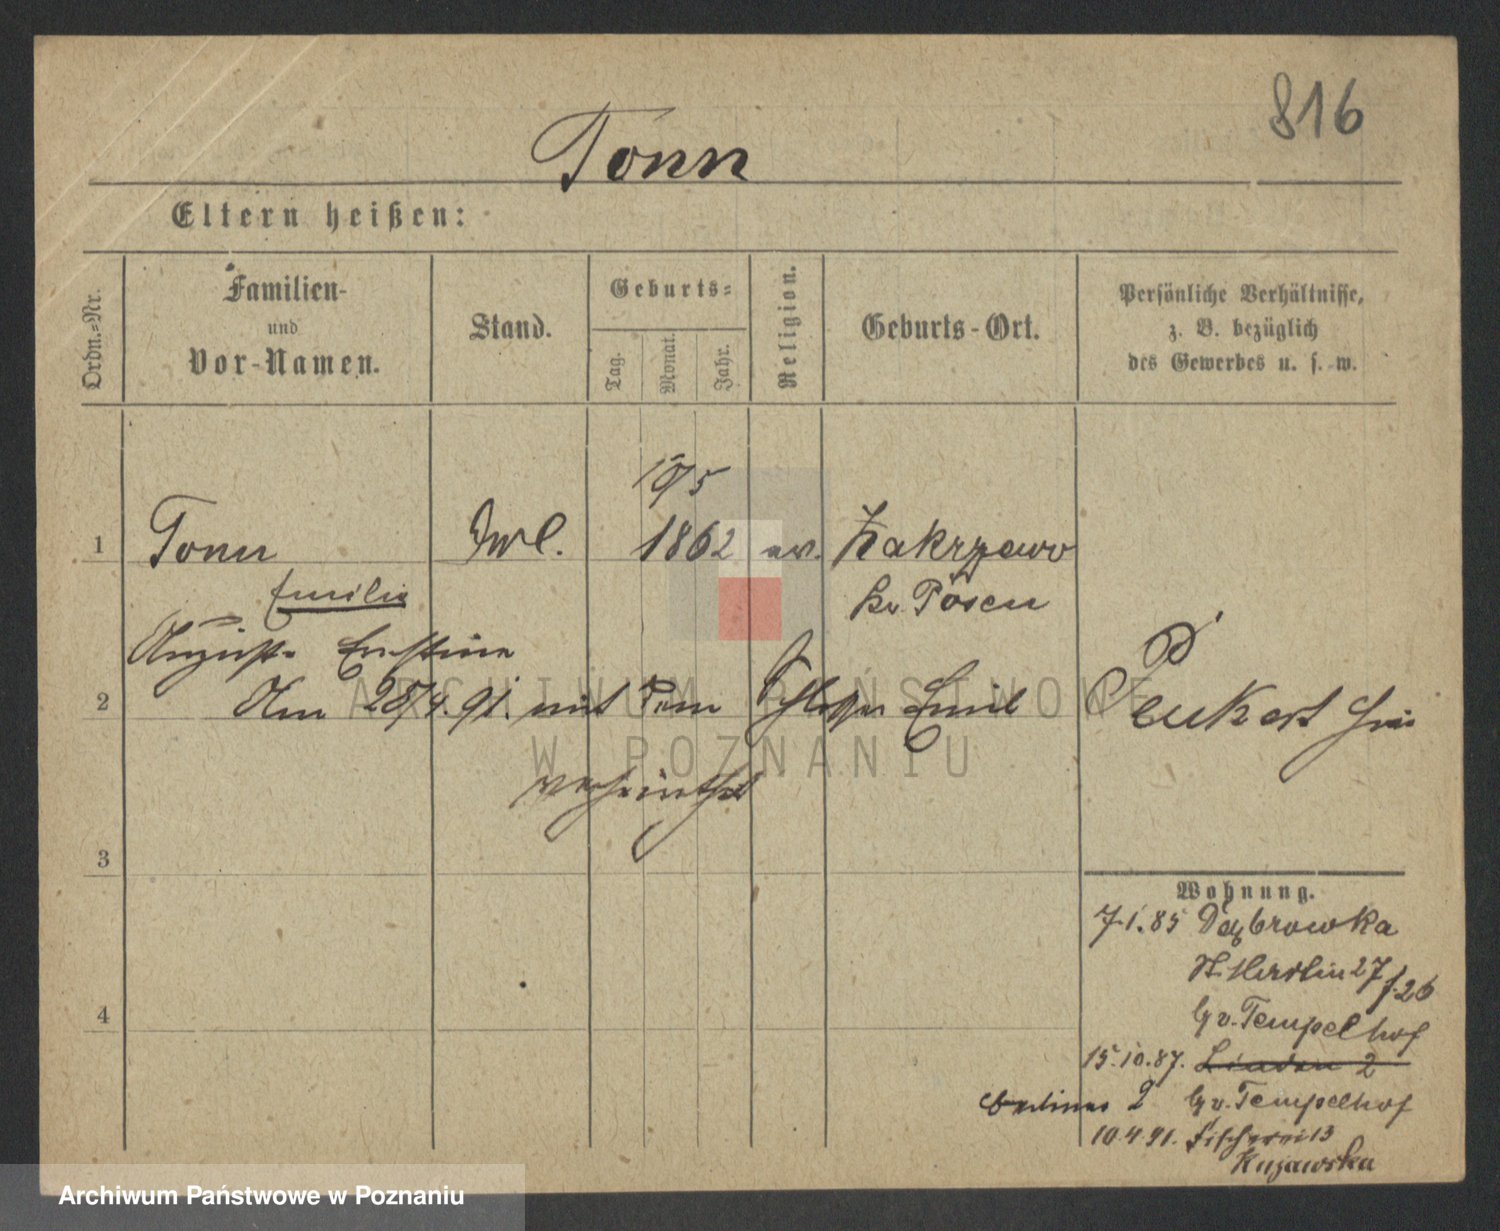 816
Tonn
Eltern heißen:
Ordn.=Nr.
Familien-
und
Vor-Namen.
Stand.
Geburts=
Tag.
Monat.
Jahr.
Religion.
Geburts-Ort.
Persönliche Verhältnisse,
z. B. bezüglich
des Gewerbes u. s. w.
10/5
1 Tonn 1862 ev. Zakrzewo
Emilie Kr. Posen
Auguste Ernstine
2 Am 28/4.91. mit dem Schlosser Emil Peukert hier
verheirathet
3
4
Wohnung.
7.1.85 Dąbrowka
St. Martin 27 f. 26
b/ v. Tempelhof
15.10.87. Linden 2
Berliner 2 b/ v. Tempelhof
10.4.91. Fischerei 13
Kujawska
ARCHIWUM PAŃSTWOWE
W POZNANIU
Archiwum Państwowe w Poznaniu